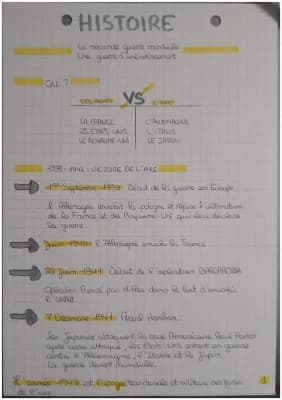 HISTOIRE
La seconde guerre mondiale
Une guerre d'anéantissement
QUI ?
VS
L'AXE
LA FRANCE
L'ALLEMAGNE
LES ETATS-UNIS
L'ITALIE
LE ROYAUME-UNI
LE JAPON
1939-1942 : VICTOIRE DE L'AXE
1er Septembre 1939 Début de la guerre en Europe
L'Allemagne envahit la pologne et refuse l'ultimatum
de la France et du Royaume Uni qui leur déclare
la guerre
Juin 1940 l'Allemagne envahi la France
22 Juin 1941 Début de l'opération BARBAROSSA
Opération lancé par Hitler dans le but d'envahir
l'URSS
7 Décembre 1941 Pearl Harbor
Les Japonais attaquent la base Américaine Pearl Harbor
après cette attaque, les Etats-Unis entrent en guerre
contre l'Allemagne, l'Italie et le Japon.
La guerre devient mondiale.
L'année 1942 est l'apogée territoriale et militaire des forces
de l'axe
1